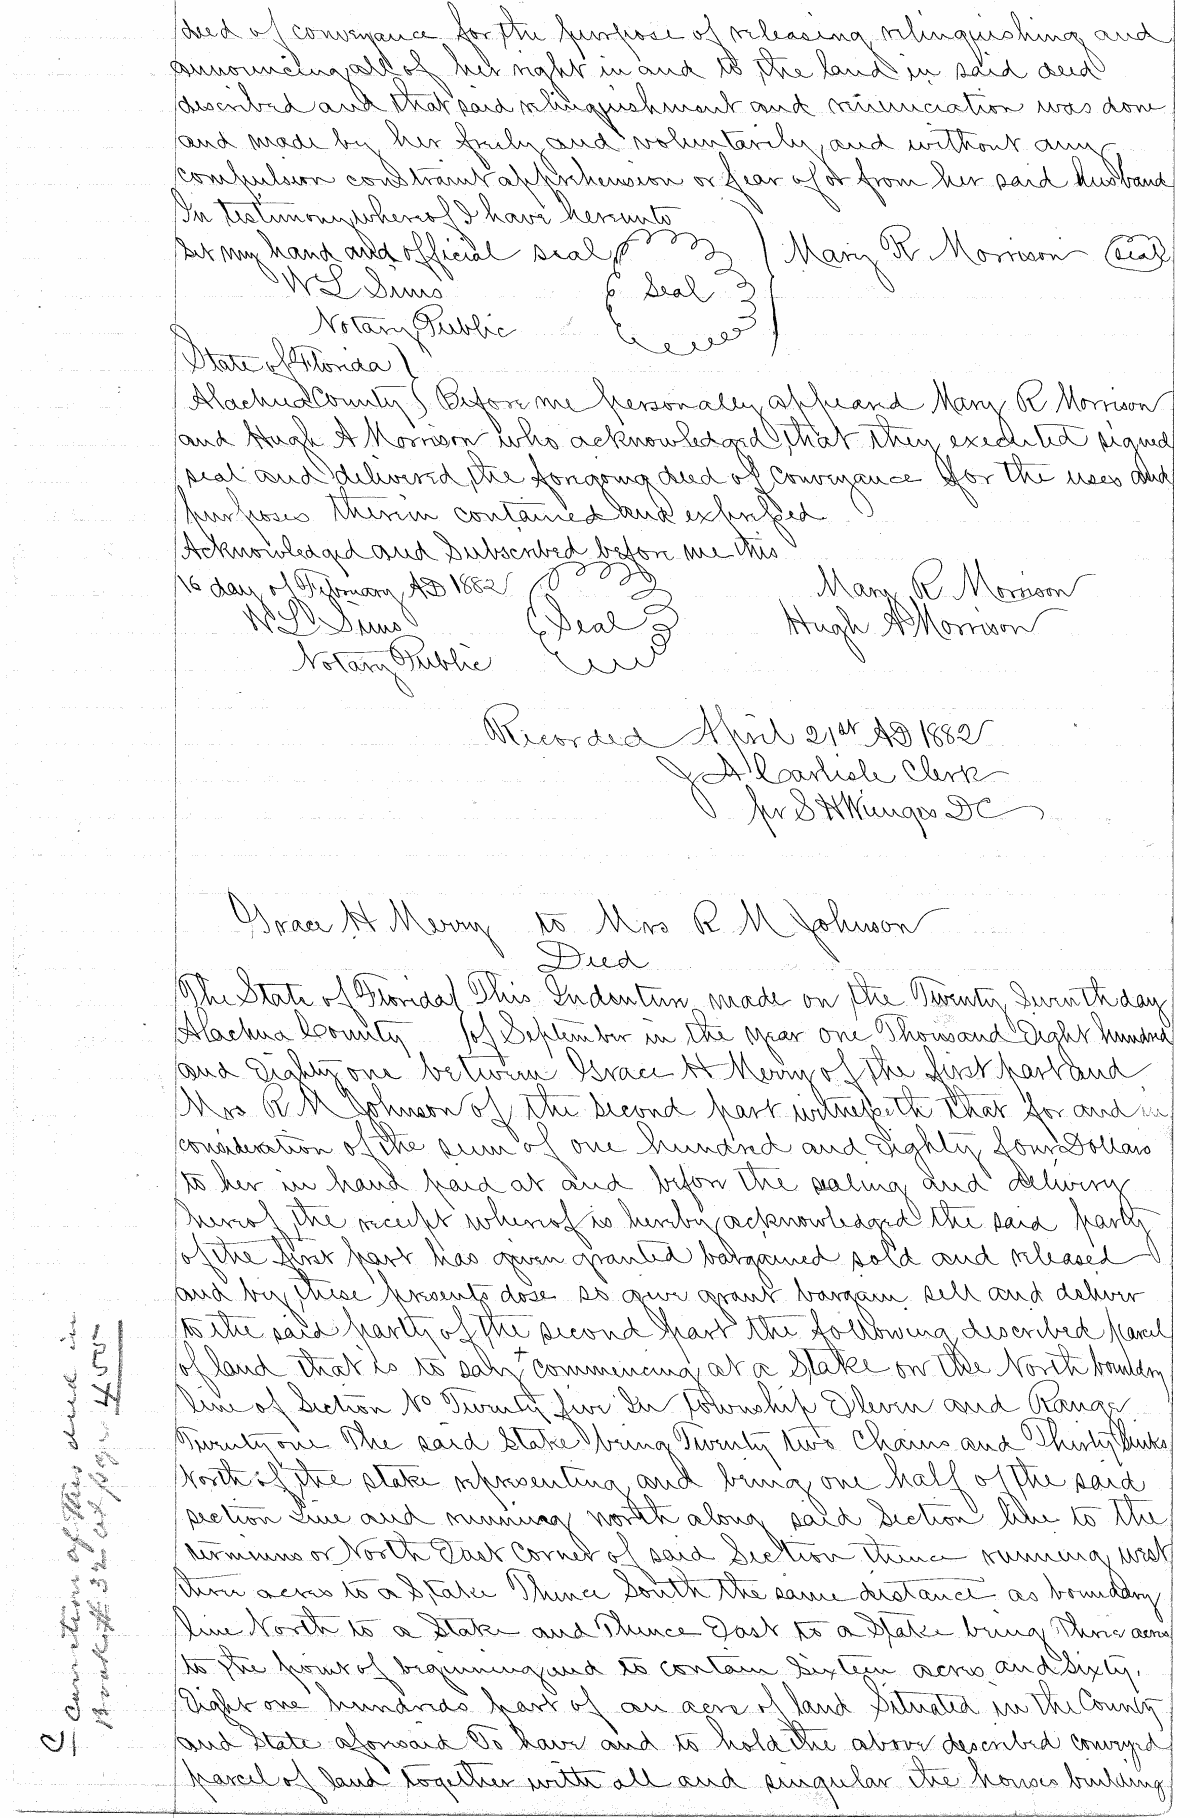 deed of conveyance for the purpose of releasing relinquishing and
announcing all of her right in and to the land in said deed
described and that said relinquishment and renunciation was done
and made by her freely and voluntarily and without any
compulsion constraint apprehension or fear of or from her said husband
In testimony whereof I have hereunto
set my hand and official seal Mary R Morrison Seal
W L Sims Seal
Notary Public
State of Florida
Alachua County Before me personally appeard Mary R Morrison
and Hugh A Morrison who acknowledged that they executed signed
seal and delivered the foregoing deed of conveyance for the uses and
purposes therein contained and expressed
Acknowledged and Subscribed before me this
16 day of February AD 1882 Mary R Morrison
W L Sims Seal Hugh A Morrison
Notary Public
Recorded April 21st AD 1882
J A Carlisle Clerk
pr S H Wienges DC
Grace H Merry to Mrs R M Johnson
Deed
The State of Florida This Indenture made on the Twenty Seventh day
Alachua County of September in the year one Thousand Eight hundred
and Eighty one between Grace H Merry of the first part and
Mrs R M Johnson of the second part witnesseth that for and in
consideration of the sum of one hundred and Eighty four Dollars
to her in hand paid at and before the sealing and delivery
hereof the receipt whereof is hereby acknowledged the said party
of the first part has given granted bargained sold and released
and by these presents dose so give grant bargain sell and deliver
to the said party of the second part the following described parcel
of land that is to say + commencing at a Stake on the North boundry
line of Section No Twenty five In Township Eleven and Range
Twenty one The said Stake being Twenty two Chains and Thirty links
North of the stake representing and being one half of the said
section line and running north along said Section like to the
terminus or North East Corner of said Section thence running west
three acres to a Stake Thence South the same distance as boundary
line North to a Stake and Thence East to a Stake being Three acres
to the point of beginning and to contain Sixteen acres and Sixty
Eight one hundreds part of an acre of land Situated in the County
and State aforesaid To have and to hold the above described conveyed
parcel of land together with all and singular the houses building
+ Correction of this deed in
Book 32 at page 455